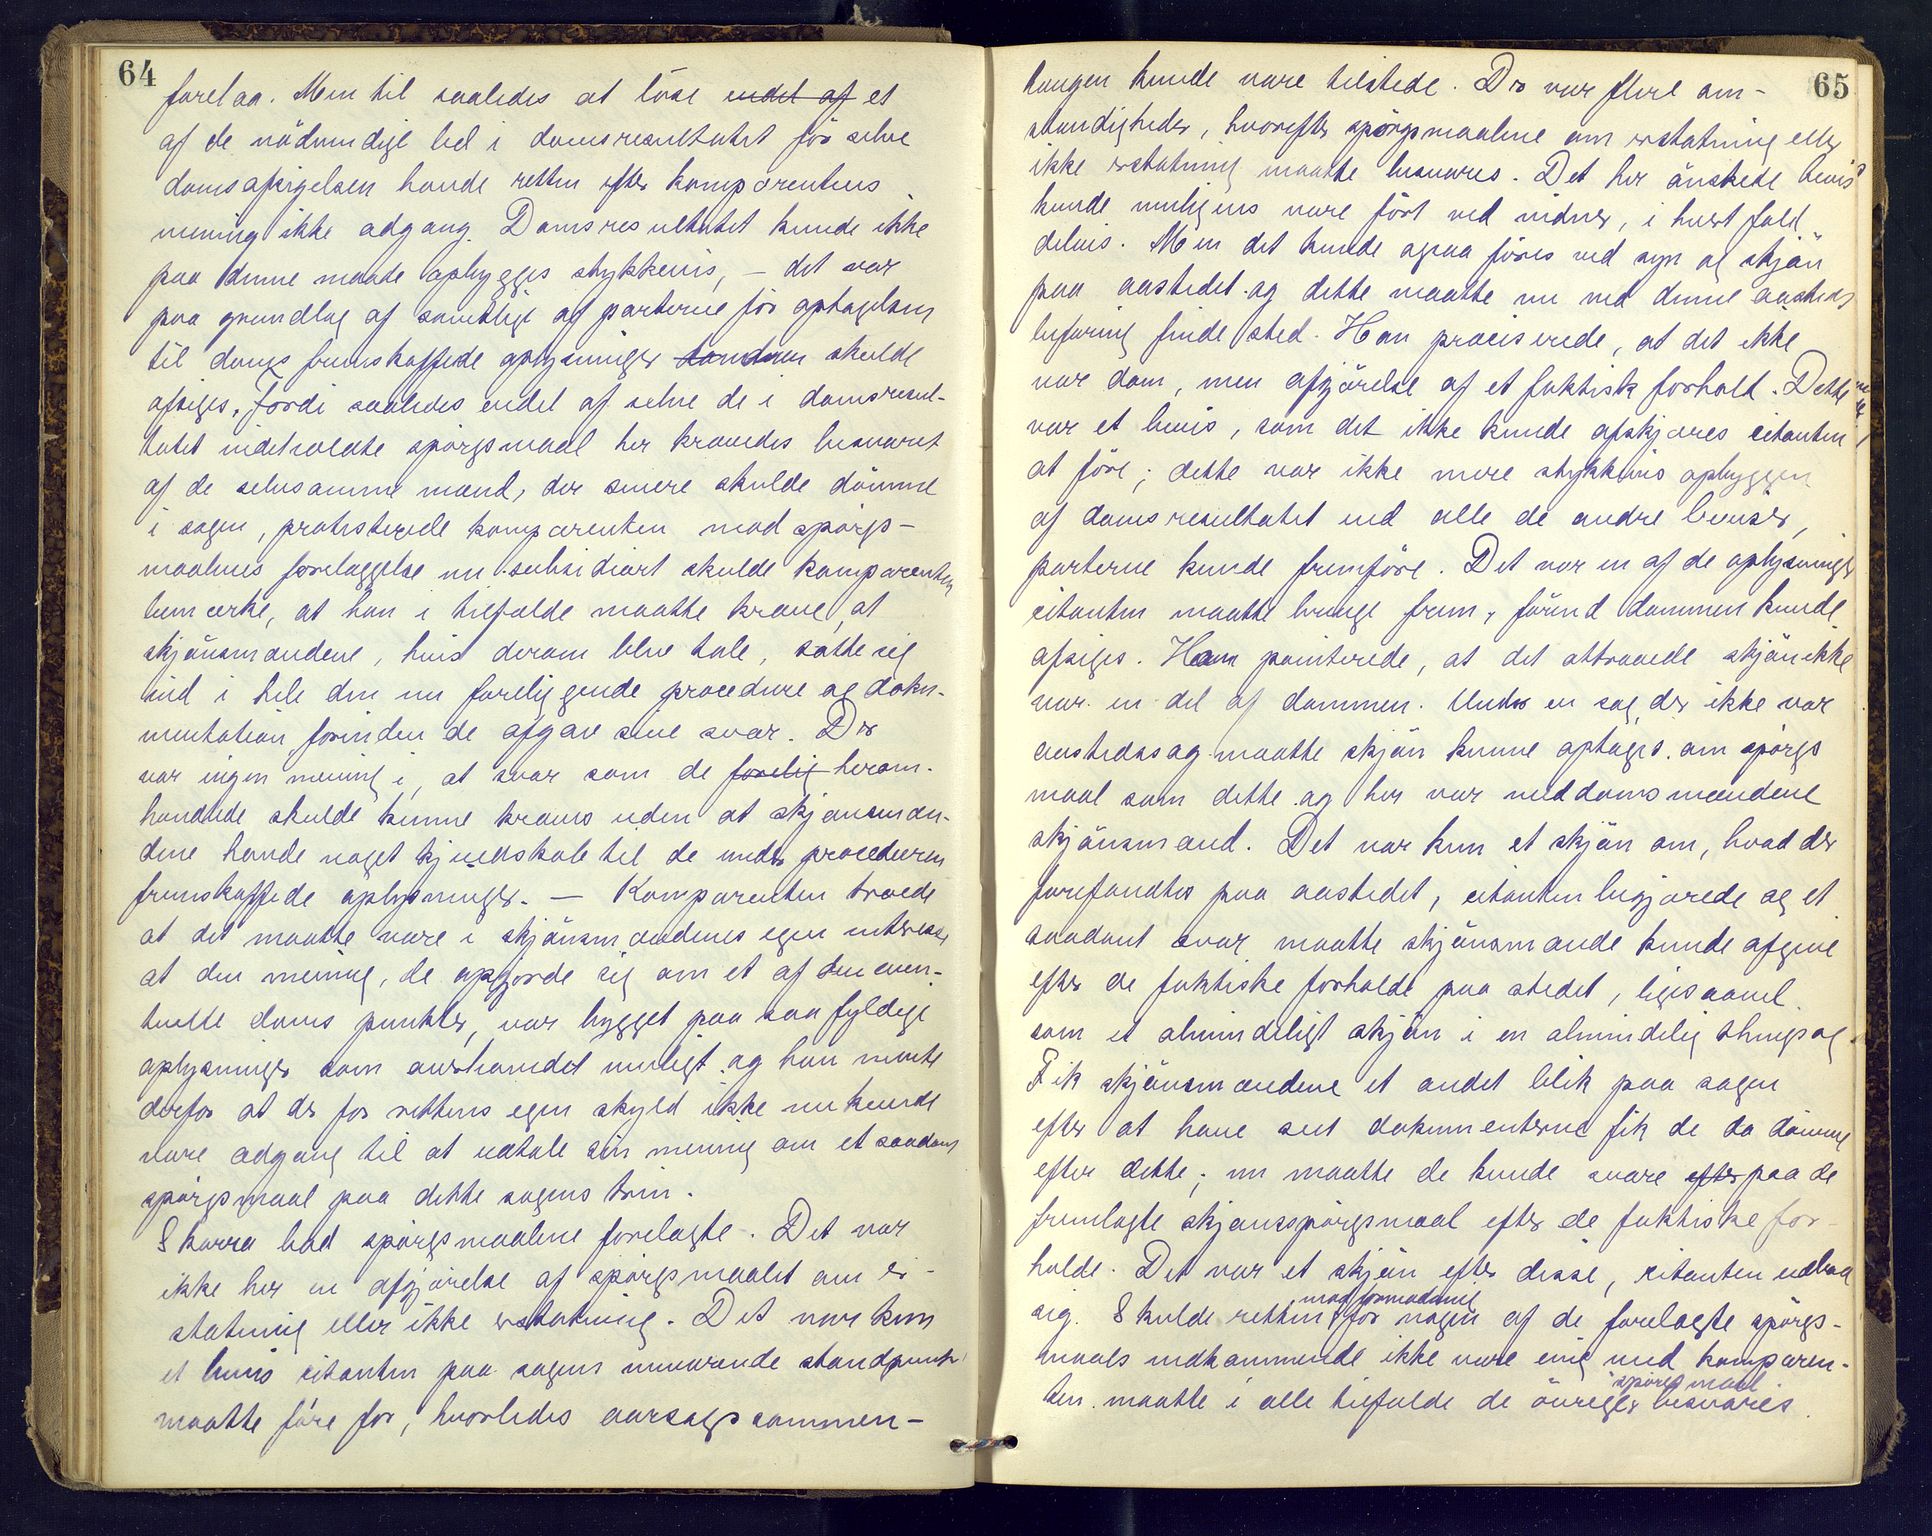 64
forelaa. Men til saaledes at löse endel af et
af de nödvendige led i domsresultatet för selve
domsafsigelsen havde retten efter komparentens
mening ikke adgang. Domsresultatet kunde ikke
paa denne maade opbygges stykkevis, – det var
paa grundlag af samtlige af parterne för optagelsen
til doms fremskaffede oplysninger skulde
afsiges. Fordi saaledes endel af selve de i domsresul-
tatet indeholdte spörgsmaal her krævedes besvaret
af de selvsamme mænd, der senere skulde dömme
i sagen, protesterede komparenten mod spörgs-
maalenes foreleggelse nu. subsidiært skulde komparenten
bemærke, at han i tilfælde maatte kræve, at
skjönsmændene, hvis derom blev tale, satte sig
ind i hele den nu foreliggende procedure og doku-
mentation forinden de afgav sine svar. Der
var ingen mening i, at svar som de forelig herom-
handlede skulde kunne kræves uden at skjönsmæn-
dene havde noget kjendskab til de under proceduren
fremskaffede oplysninger. – Komparenten troede
at det maatte være i skjönsmændenes egen interesse
at den mening, de opgjorde sig om et af de even-
tuelle doms punkter, var bygget paa saa fyldige
oplysninger som overhovedet muligt og han mente
derfor at der for rettens egen skyld ikke nu kunde
være adgang til at udtale sin mening om et saadant
spörgsmaal paa dette sagens trin.
Skarra bad spörgsmaalene forelagte. Det var
ikke her en afgjörelse af spörgsmaalet om er-
statning eller ikke erstatning. Det var kun
et bevis citanten paa sagens nuværende standpunkt
maatte före for, hvorledes aarsagssammen-
65
hængen kunde være tilstede. Der var flere om-
stændigheder, hvorefter spörgsmaalene om erstatning eller
ikke erstatning maatte besvares. Det her önskede bevis
kunde muligens være fört ved vidner, i hvert fald
delvis. Men det kunde ogsaa föres ved syn og skjön
paa aastedet og dette maatte nu ved denne aasteds
befaring finde sted. Han præciserede, at det ikke
var dom, men afgjörelse af et faktisk forhold. Dette
var et bevis, som det ikke kunde afskjæres citanten
at före; dette var ikke mere stykkevis opbyggen
af domsresultatet end alle de andre beviser,
parterne kunde fremföre. Det var en af de oplysninger
citanten maatte bringe frem, förend dommen kunde
afsiges. Han pointerede, at det attraaede skjön ikke
var en del af dommen. Under en sag, der ikke var
aastedssag maatte skjön kunne optages om spörgs
maal som dette og her var meddomsmændene
skjönsmænd. Det var kun et skjön om, hvad der
forefandtes paa aastedet, citanten begjærede og et
saadant svar maatte skjönsmænde kunde afgive
efter de faktiske forholde paa stedet, ligesaavel
som et almindeligt skjön i en almindelig thingsag.
Fik skjönsmændene et andet blik paa sagen
efter at have set dokumenterne fik de da dömme
efter dette; nu maatte de kunde svare efter paa de
fremlagte skjönsspörgsmaal efter de faktiske for-
holde. Det var et skjön efter disse, citanten udbad
sig. Skulde retten mod formodning for nogen af de forelagte spörgs-
maals vedkommende ikke være enig med komparen-
ten. maatte i alle tilfælde de övrige spörgsmaal besvares.